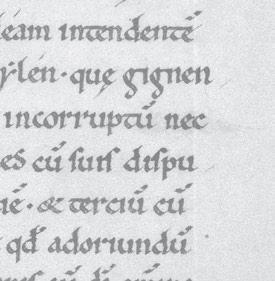 eam intendentē
ẏlen · quę gignen
incorruptū nec
es cū suis dispu
ıē · & terciū cū
qđ adoriundū